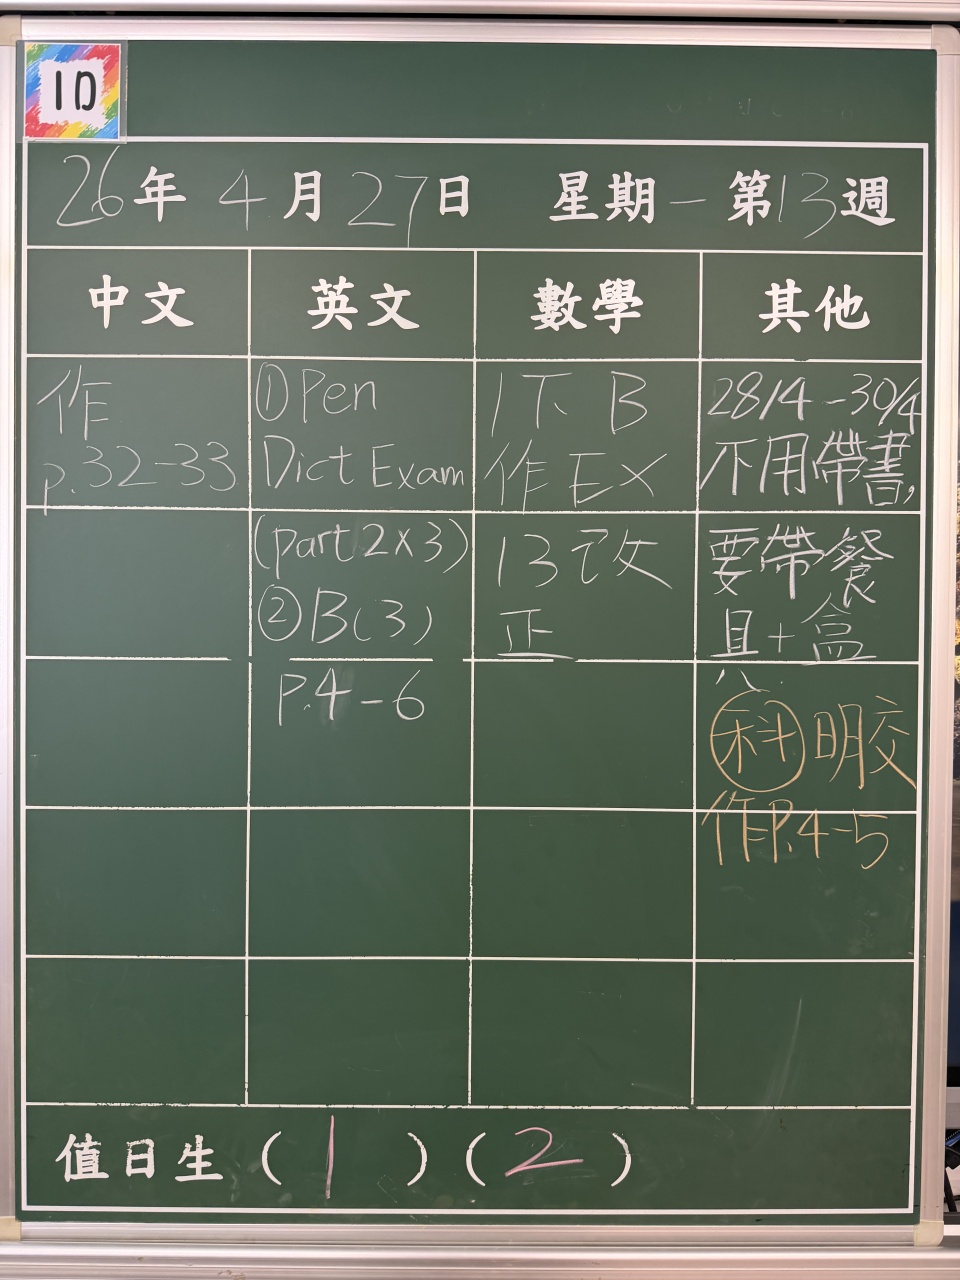 1D
26年 4月27日 星期一 第13週
中文
英文
數學
其他
作
p.32-33
①Pen
Dict Exam
(part 2×3)
②B(3)
P.4-6
1下 B
作 EX
13 改
正
28/4-30/4
不用帶書,
要帶餐
具+盒
科 明交
作P.4-5
值日生 (1) (2)